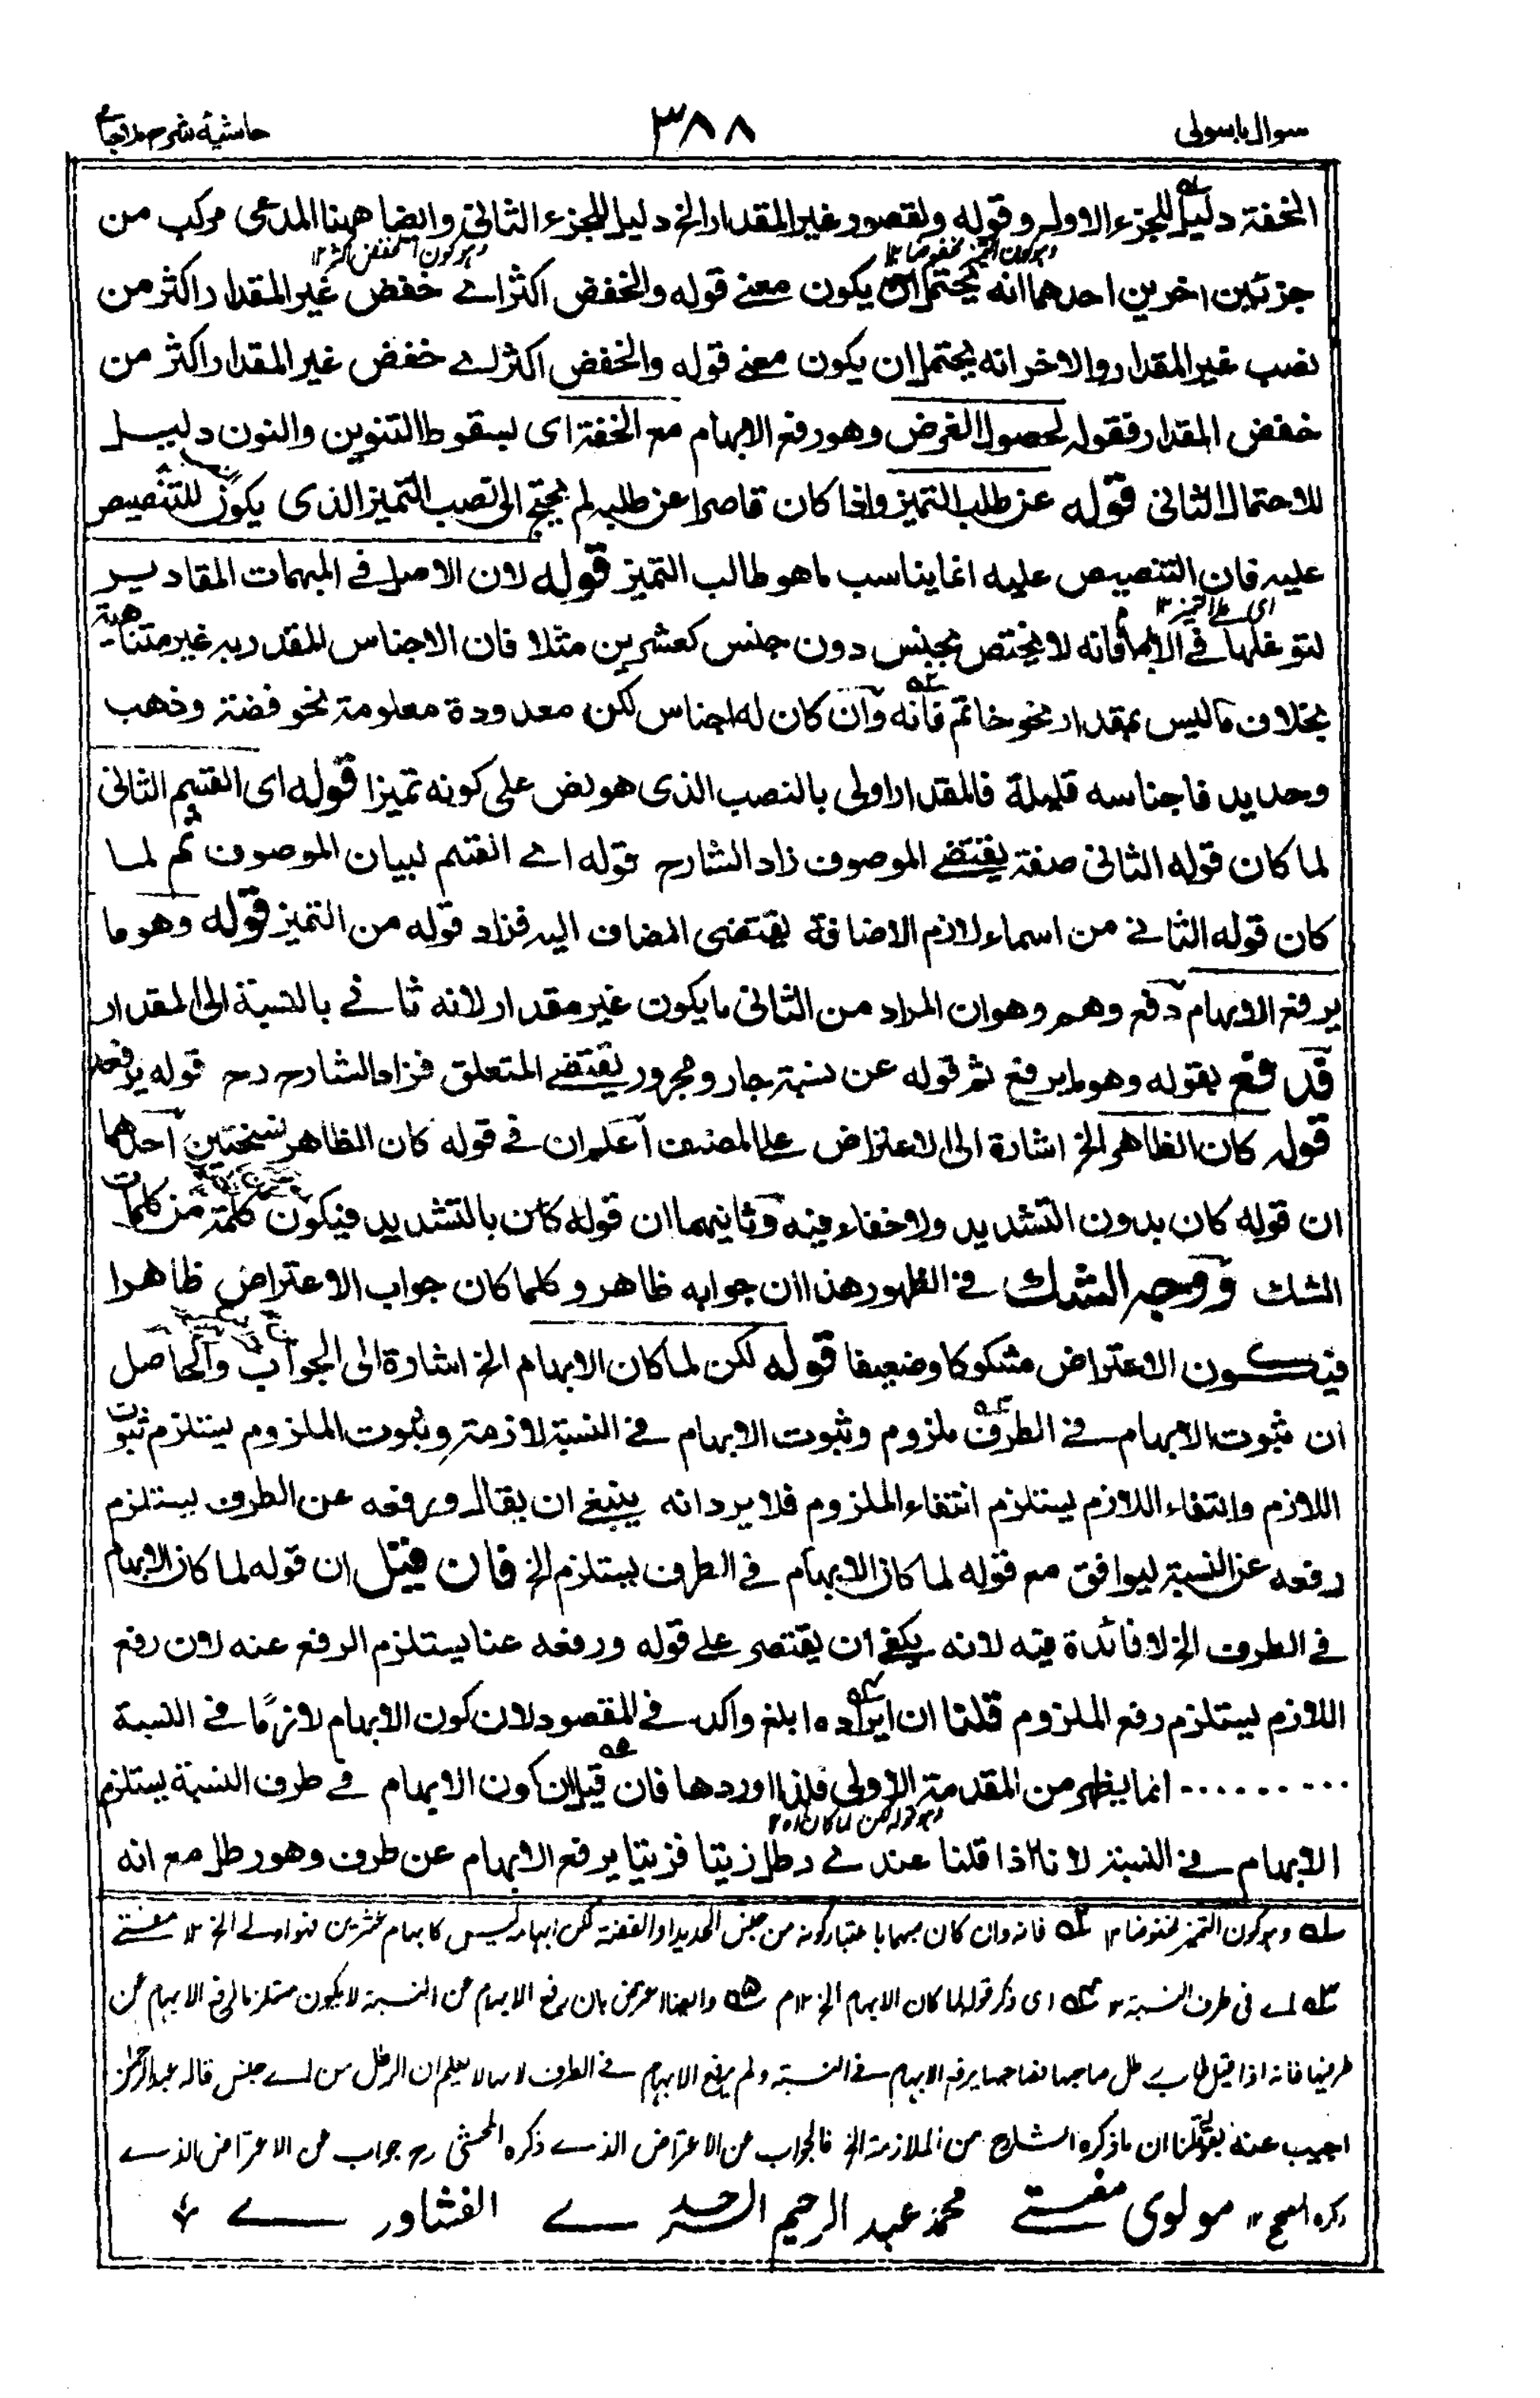 سوال باسولی
٣٨٨
حاشیة شرح ملاجامی
الخفة دلیل للجزء الاول وقوله ولقصور غیر المقدار الخ دلیل للجزء الثانی وایضا ههنا المدعی مرکب من
وهو کون التمیز مخفوضا ١٢
وهو کون الخفض اکثر ١٢
جزئین اخرین احدهما انه یحتمل ان یکون معنے قوله والخفض اکثر اے خفض غیر المقدار اکثر من
نصب غیر المقدار والاخر انه یحتمل ان یکون معنے قوله والخفض اکثر اے خفض غیر المقدار اکثر من
خفض المقدار فقوله لحصول الغرض وهو رفع الابهام مع الخفة ای بسقوط التنوین والنون دلیل
للاحتمال الثانی قوله عن طلب التمیز واذا کان قاصرا عن طلبه لم یحتج الی نصب التمیز الذی یکون للتنصیص
علیه فان التنصیص علیه انما یناسب ما هو طالب التمیز قوله لان الاصل فے المبهمات المقادیر
ای علے التمیز ١٢
لتوغلها فے الابهام فانه لا یختص بجنس دون جنس کعشرین مثلا فان الاجناس المقدر به غیر متناهیة
بخلاف ما لیس بمقدار نحو خاتم فانه وان کان له اجناس لکن معدودة معلومة نحو فضة وذهب
وحدید فاجناسه قلیلة فالمقدار اولی بالنصب الذی هو نص علی کونه تمیزا قوله ای القسم الثانی
لما کان قوله الثانی صفة یقتضے الموصوف زاد الشارح قوله اے القسم لبیان الموصوف ثم لما
کان قوله الثانے من اسماء لازم الاضافة یقتضی المضاف الیه فزاد قوله من التمیز قوله وهو ما
یرفع الابهام دفع وهم وهو ان المراد من الثانی ما یکون غیر مقدار لانه ثانے بالنسبة الی المقدار
فدفع بقوله وهو ما یرفع ثم قوله عن نسبة جار ومجرور یقتضے المتعلق فزاد الشارح رح قوله یرفعه
قوله کان الظاهر الخ اشارة الی الاعتراض علی المصنف اعلم ان فے قوله کان الظاهر نسختین احدهما
ان قوله کان بدون التشدید ولا خفاء فیه وثانیهما ان قوله کان بالتشدید فیکون کلمة من کلمات
الشك ووجه الشك فے الظهور هذا ان جوابه ظاهر وکلما کان جواب الاعتراض ظاهرا
فیکون الاعتراض مشکوکا وضعیفا قوله لکن لما کان الابهام الخ اشارة الی الجواب والحاصل
ان ثبوت الابهام فے الطرف ملزوم وثبوت الابهام فے النسبة لازمة وثبوت الملزوم یستلزم ثبوت
اللازم وانتفاء اللازم یستلزم انتفاء الملزوم فلا یرد انه ینبغے ان یقال ورفعه عن الطرف یستلزم
رفعه عن النسبة لیوافق مع قوله لما کان الابهام فے الطرف یستلزم الخ فان قیل ان قوله لما کان الابهام
فے الطرف الخ لا فائدة فیه لانه یکفے ان یقتصر علے قوله ورفعه عنها یستلزم الرفع عنه لان رفع
اللازم یستلزم رفع الملزوم قلنا ان ایراده ابلغ واکد فے المقصود لان کون الابهام لازمًا فے النسبة
......... انما یظهر من المقدمة الاولی فلذا اوردها فان قیل ان کون الابهام فے طرف النسبة یستلزم
وهو قوله لکن لما کان الخ ١٢
الابهام فے النسبة لانا اذا قلنا عندے رطل زیتا فزیتا یرفع الابهام عن طرف وهو رطل مع انه
١ وهو کون التمیز مخفوضا ١٢ ٢ فانه وان کان مبهما باعتبار کونه من جنس الحدید او الفضة لکن ابهامه لیس کابهام عشرین فهو اولے الخ ١٢ مفتے
٣ اے فی طرف النسبة ١٢ ٤ ای ذکر قوله لما کان الابهام الخ ١٢ م ٥ وایضا اعترض بان رفع الابهام عن النسبة لا یکون مستلزما لرفع الابهام عن
طرفیها فانه اذا قیل طاب رطل صاحبها نفاحها یرفع الابهام فے النسبة ولم یرفع الابهام فے الطرف لا یعلم ان الرطل من اے جنس قاله عبد الرحمن
اجیب عنه بقولنا ان ما ذکره الشارح من الملازمة الخ فالجواب عن الاعتراض الذے ذکره المحشی رح جواب عن الاعتراض الذے
ذکره المصحح ١٢ مولوی مفتے محمد عبد الرحیم الفشاورے